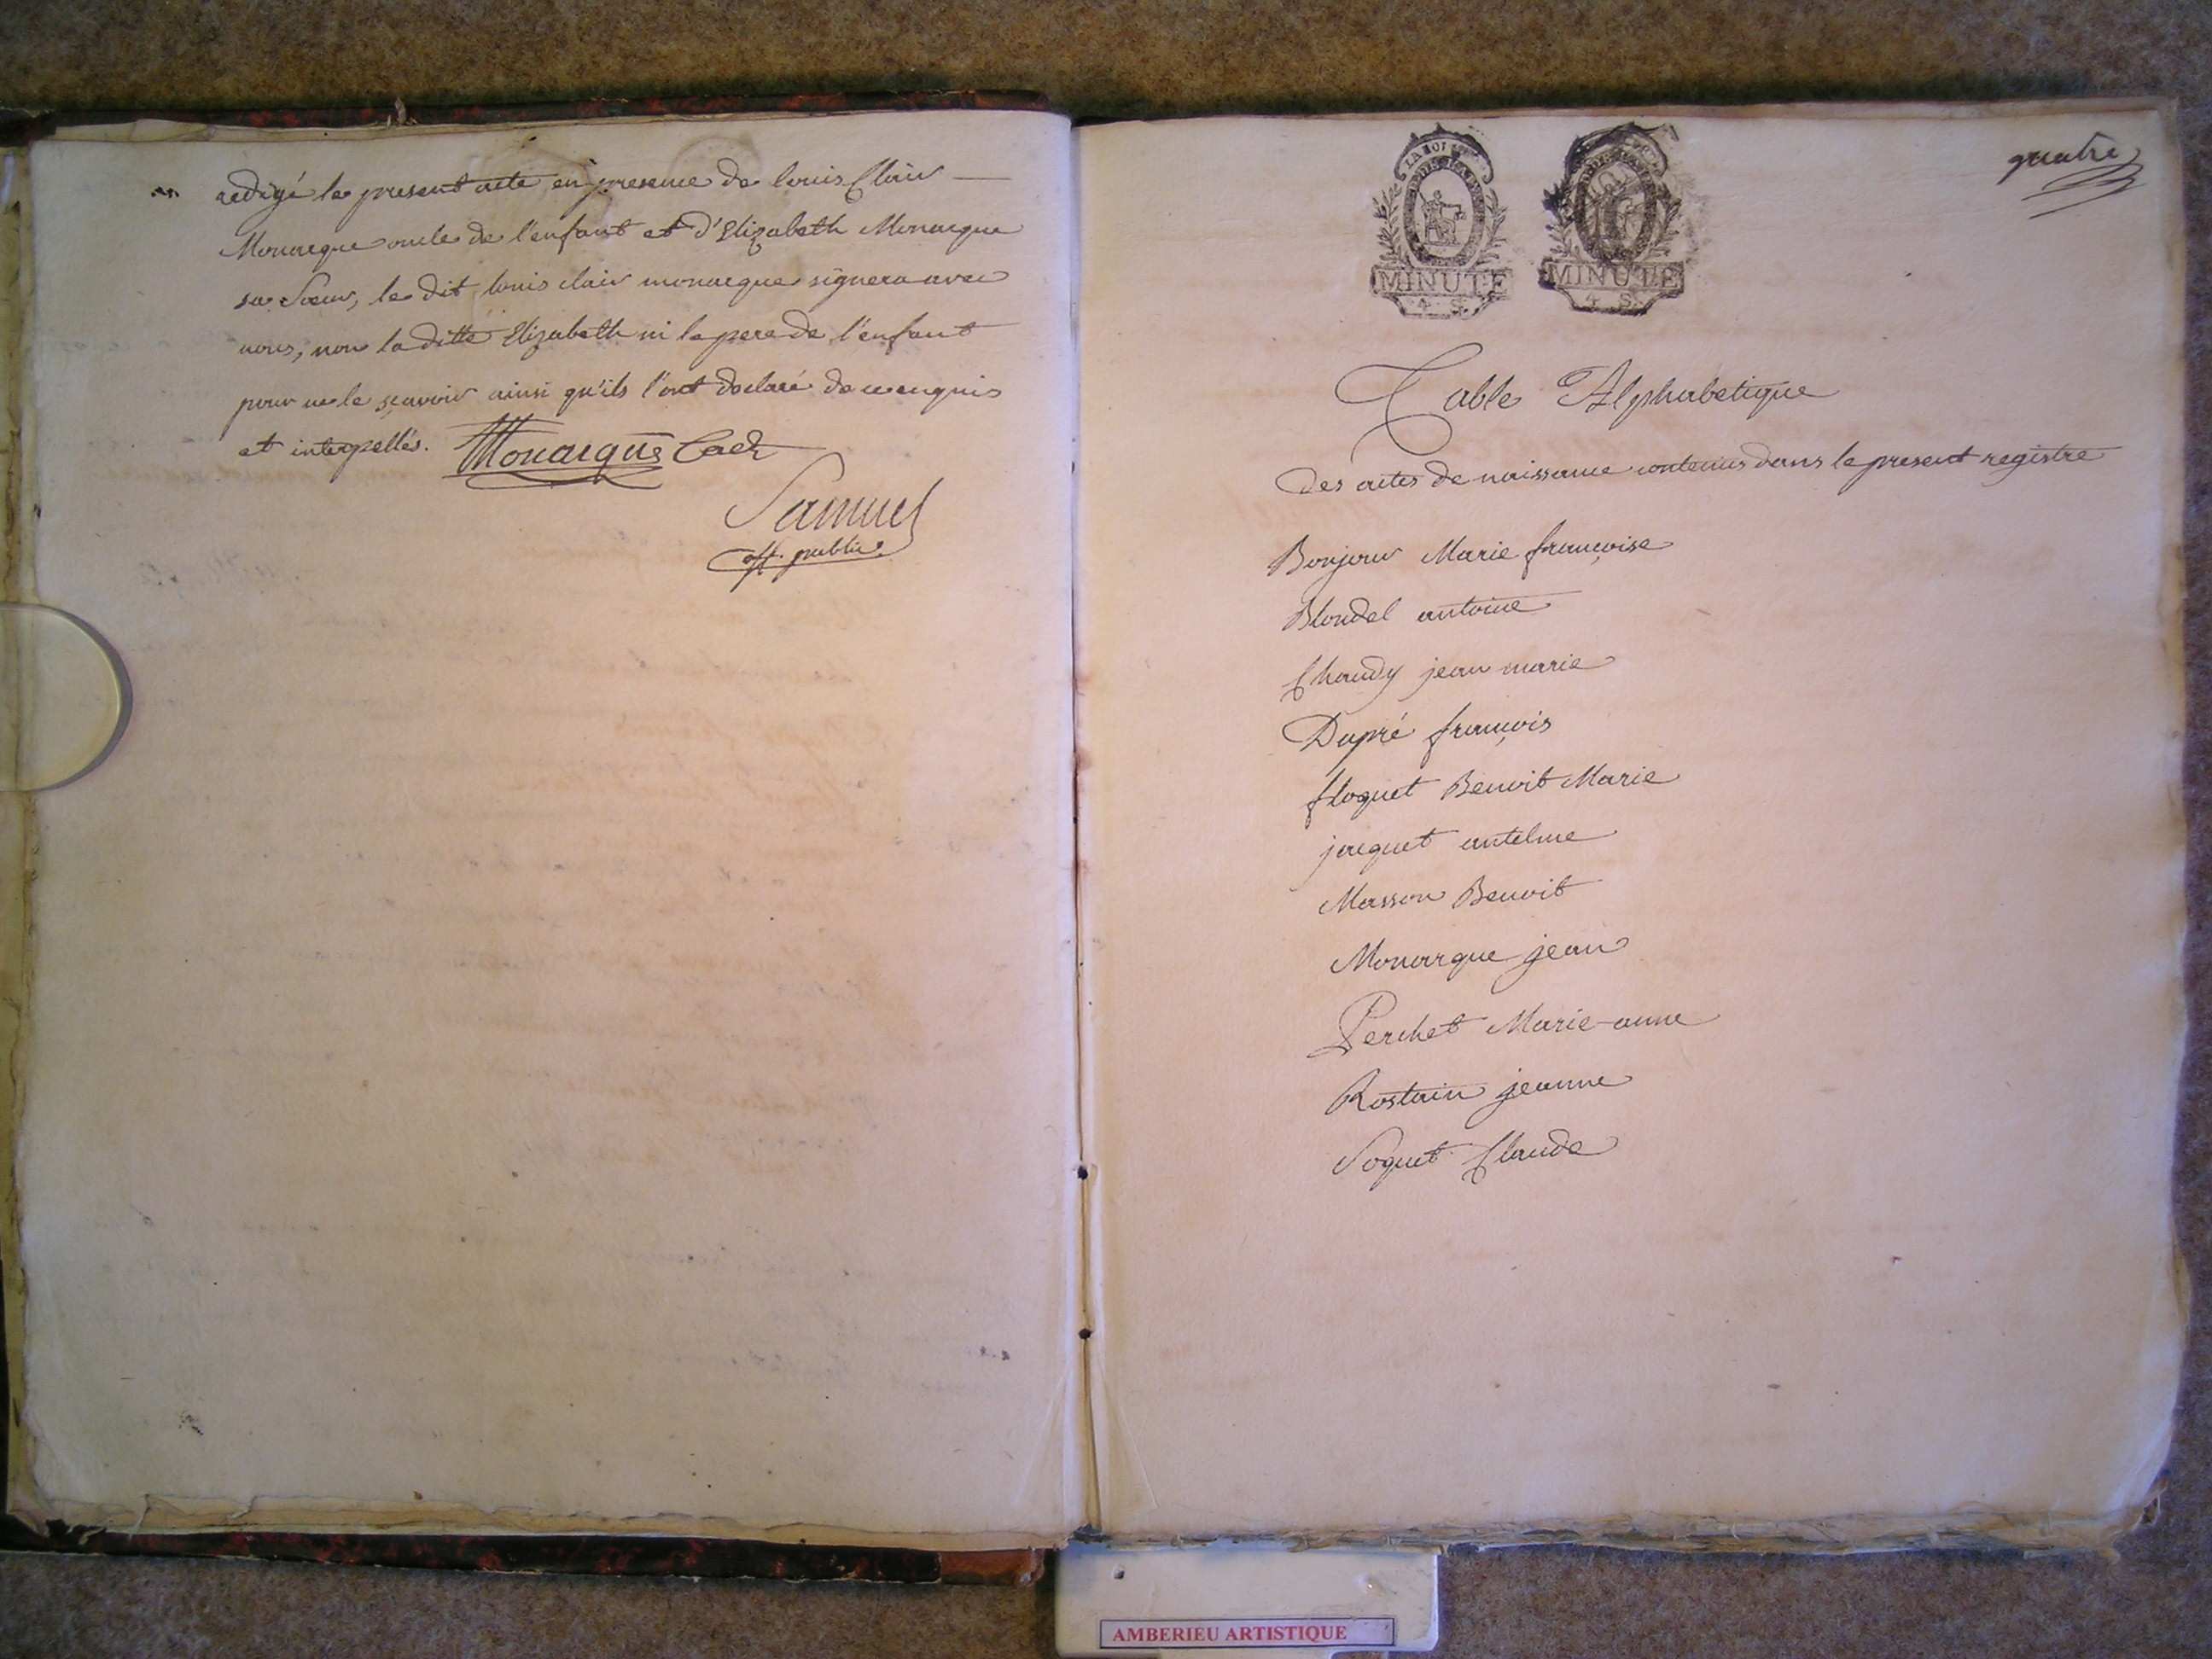 redigé le present acte en presence de louis Clair
Monarque oncle de l'enfant et d'Elizabeth Monarque
sa Sœur, le dit louis clair monarque signera avec
nous, non la ditte Elizabeth ni le pere de l'enfant
pour ne le sçavoir ainsi qu'ils l'ont declaré de ce enquis
et interpellés. Monarque
Samuel
off. public.
quatre
LA LOI
MINUTE
4. S.
MINUTE
4. S.
Table Alphabetique
des actes de naissance contenus dans le present registre
Bonjour Marie françoise
Blondel antoine
Chaudy jean marie
Dupré françois
floquet Benoit Marie
jacquet antelme
Masson Benoit
Monarque jean
Perchet Marie-anne
Rostain jeanne
Soquet Claude
AMBERIEU ARTISTIQUE